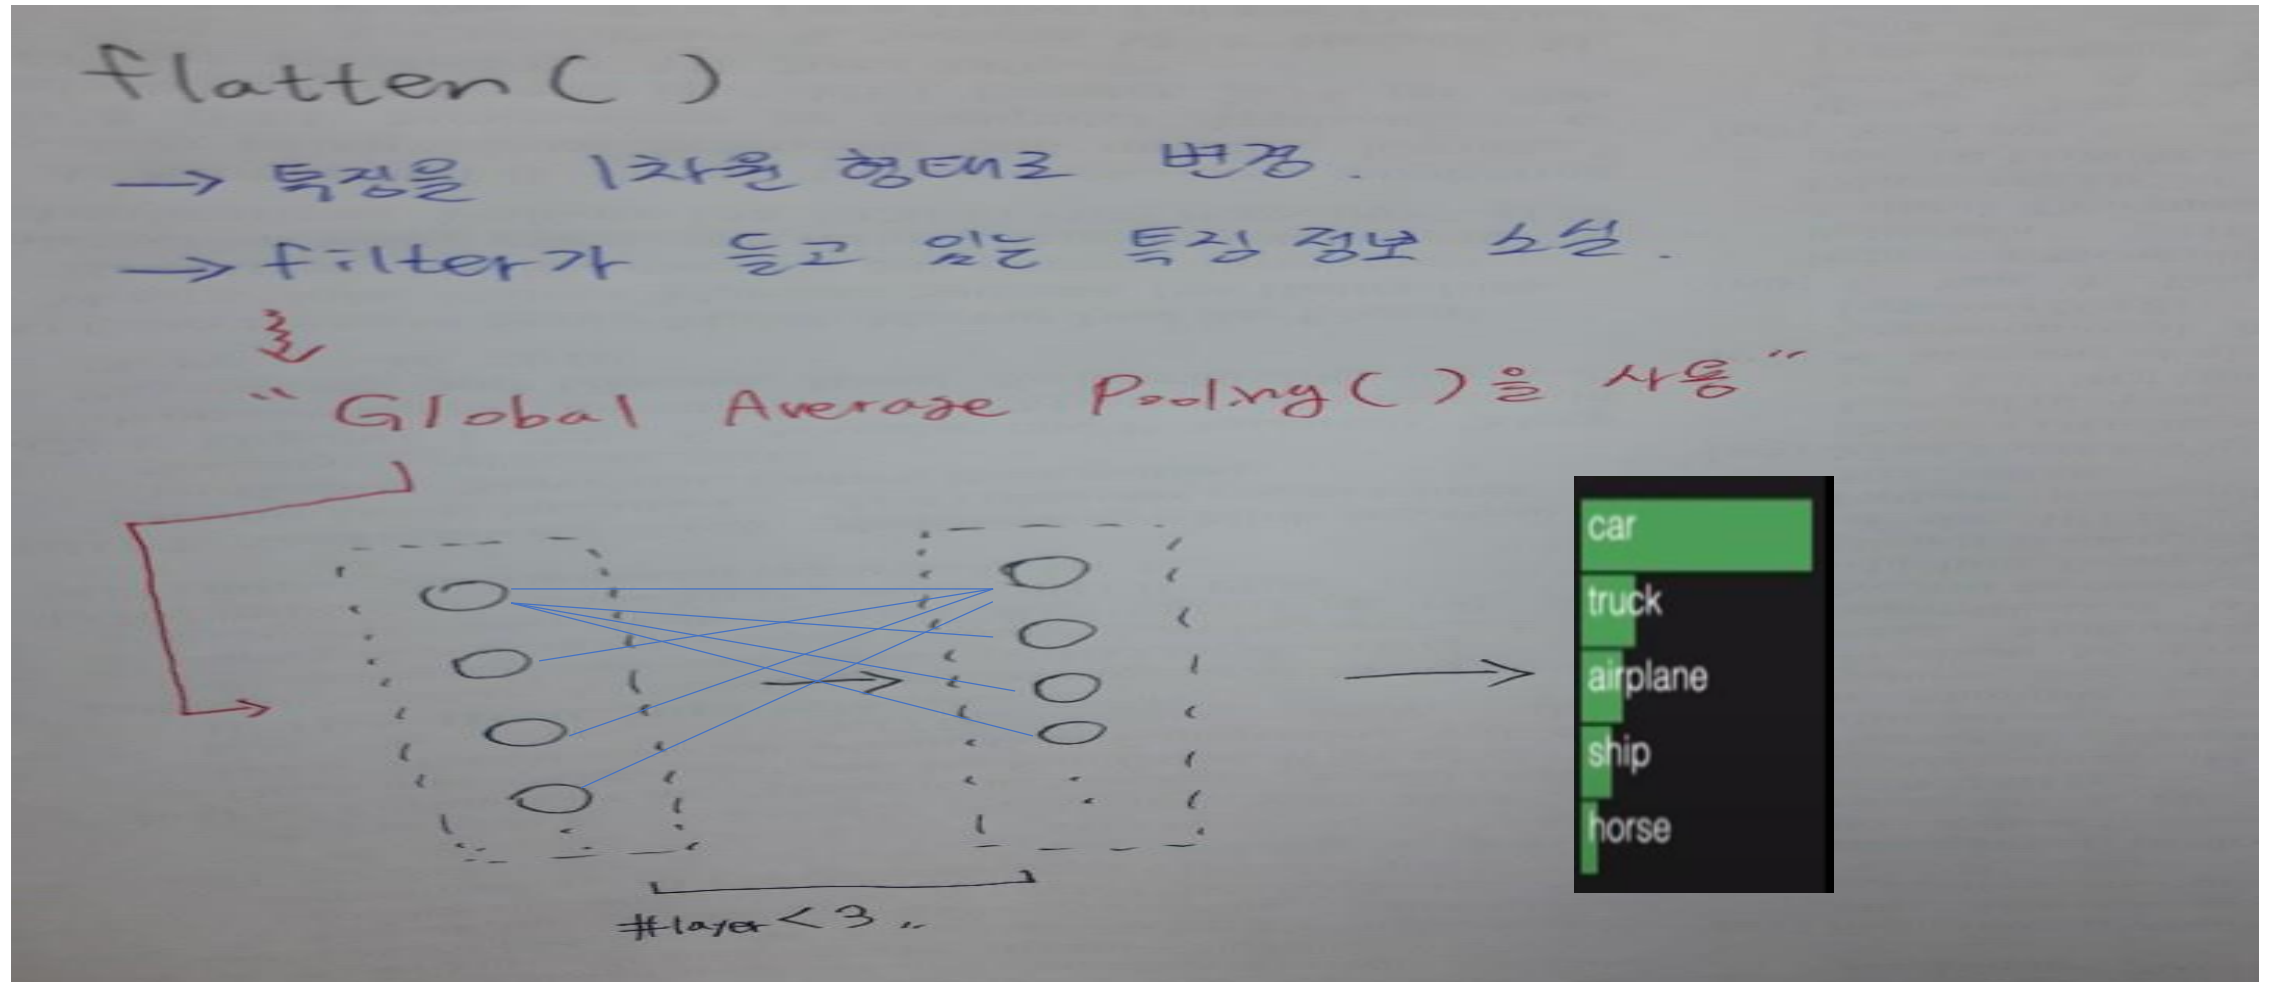 flatten( )
→ 특징을 1차원 형태로 변경.
→ filter가 들고 있는 특징 정보 소실.
“Global Average Pooling( )을 사용”
car
truck
airplane
ship
horse
#layer<3